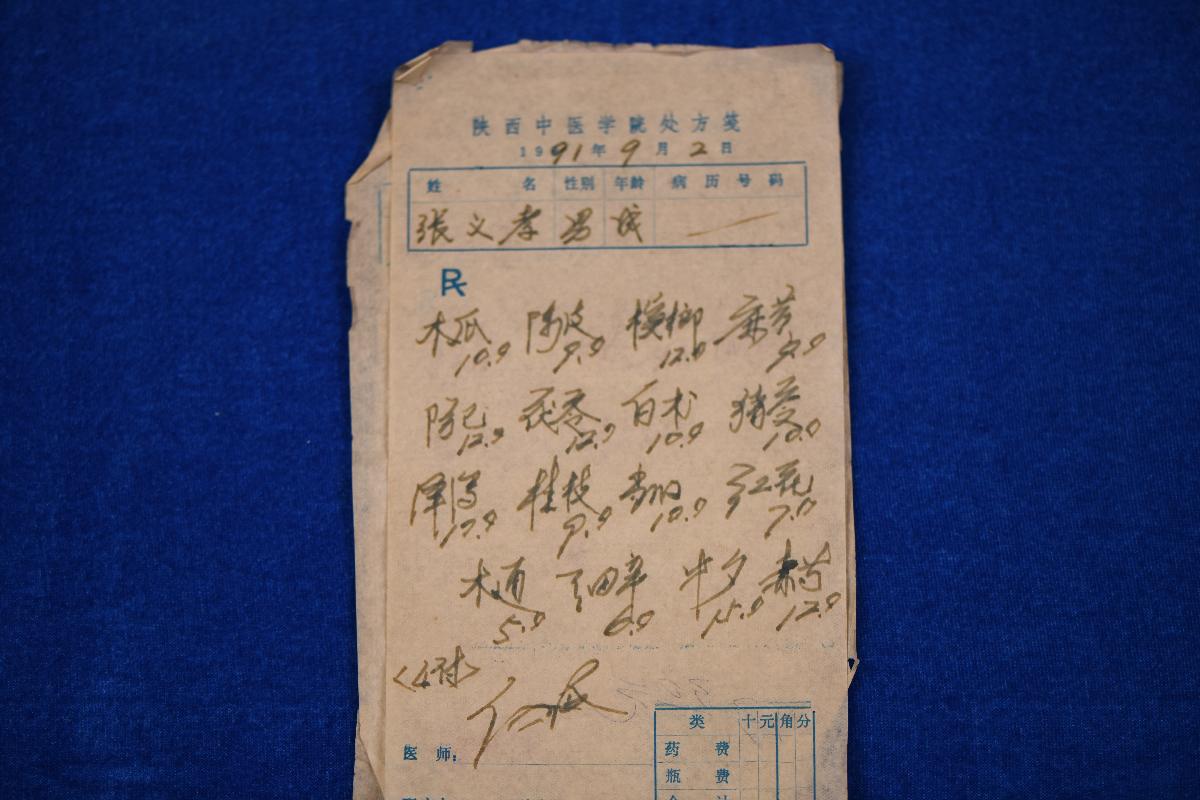 陕西中医学院处方笺
1991年9月2日
姓名 性别 年龄 病历号码
张义孝 男 成 —
R
木瓜 陈皮 槟榔
10.0 9.0 12.0 9.0
防己 茯苓 白术 猪苓
12.0 12.0 10.0 10.0
泽泻 桂枝 当归 红花
9.0 10.0 7.0
木通 细辛 牛夕 赤芍
5.0 6.0 15.0 12.0
<4付>
医师:
类 十元角分
药费
瓶费